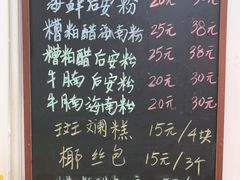 海鲜后安粉 20元 30元
糟粕醋海南粉 25元 38元
糟粕醋后安粉 25元 38元
牛腩后安粉 20元 30元
牛腩海南粉 20元 30元
斑斓糕 15元/4块
椰丝包 15元/3个